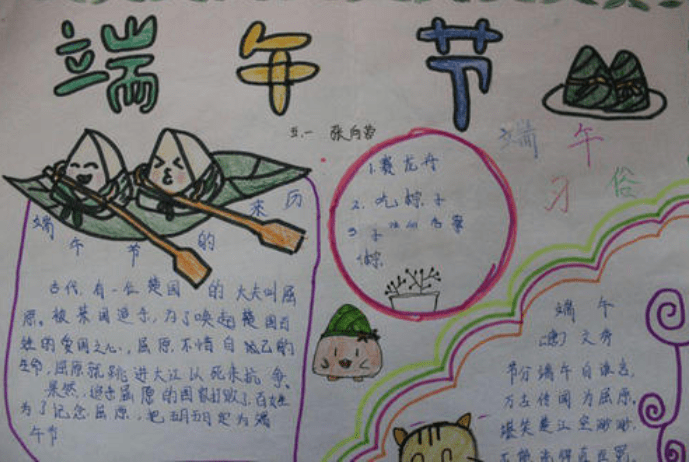 端午节
五.一 张向营
端午
习俗
1.赛龙舟
2.吃粽子
3
粽
端午节的来历
古代,有一位楚国的大夫叫屈
原。被某国追杀,为了唤起楚国百
姓的爱国之心,屈原不惜自己的
生命,屈原就跳进大江以死来抗
果然,追击屈原的国家打败了,百姓
为了记念屈原,把五月五日定为端
午节
端午
(唐)文秀
节分端午自谁言,
万古传闻为屈原。
堪笑楚江空渺渺,